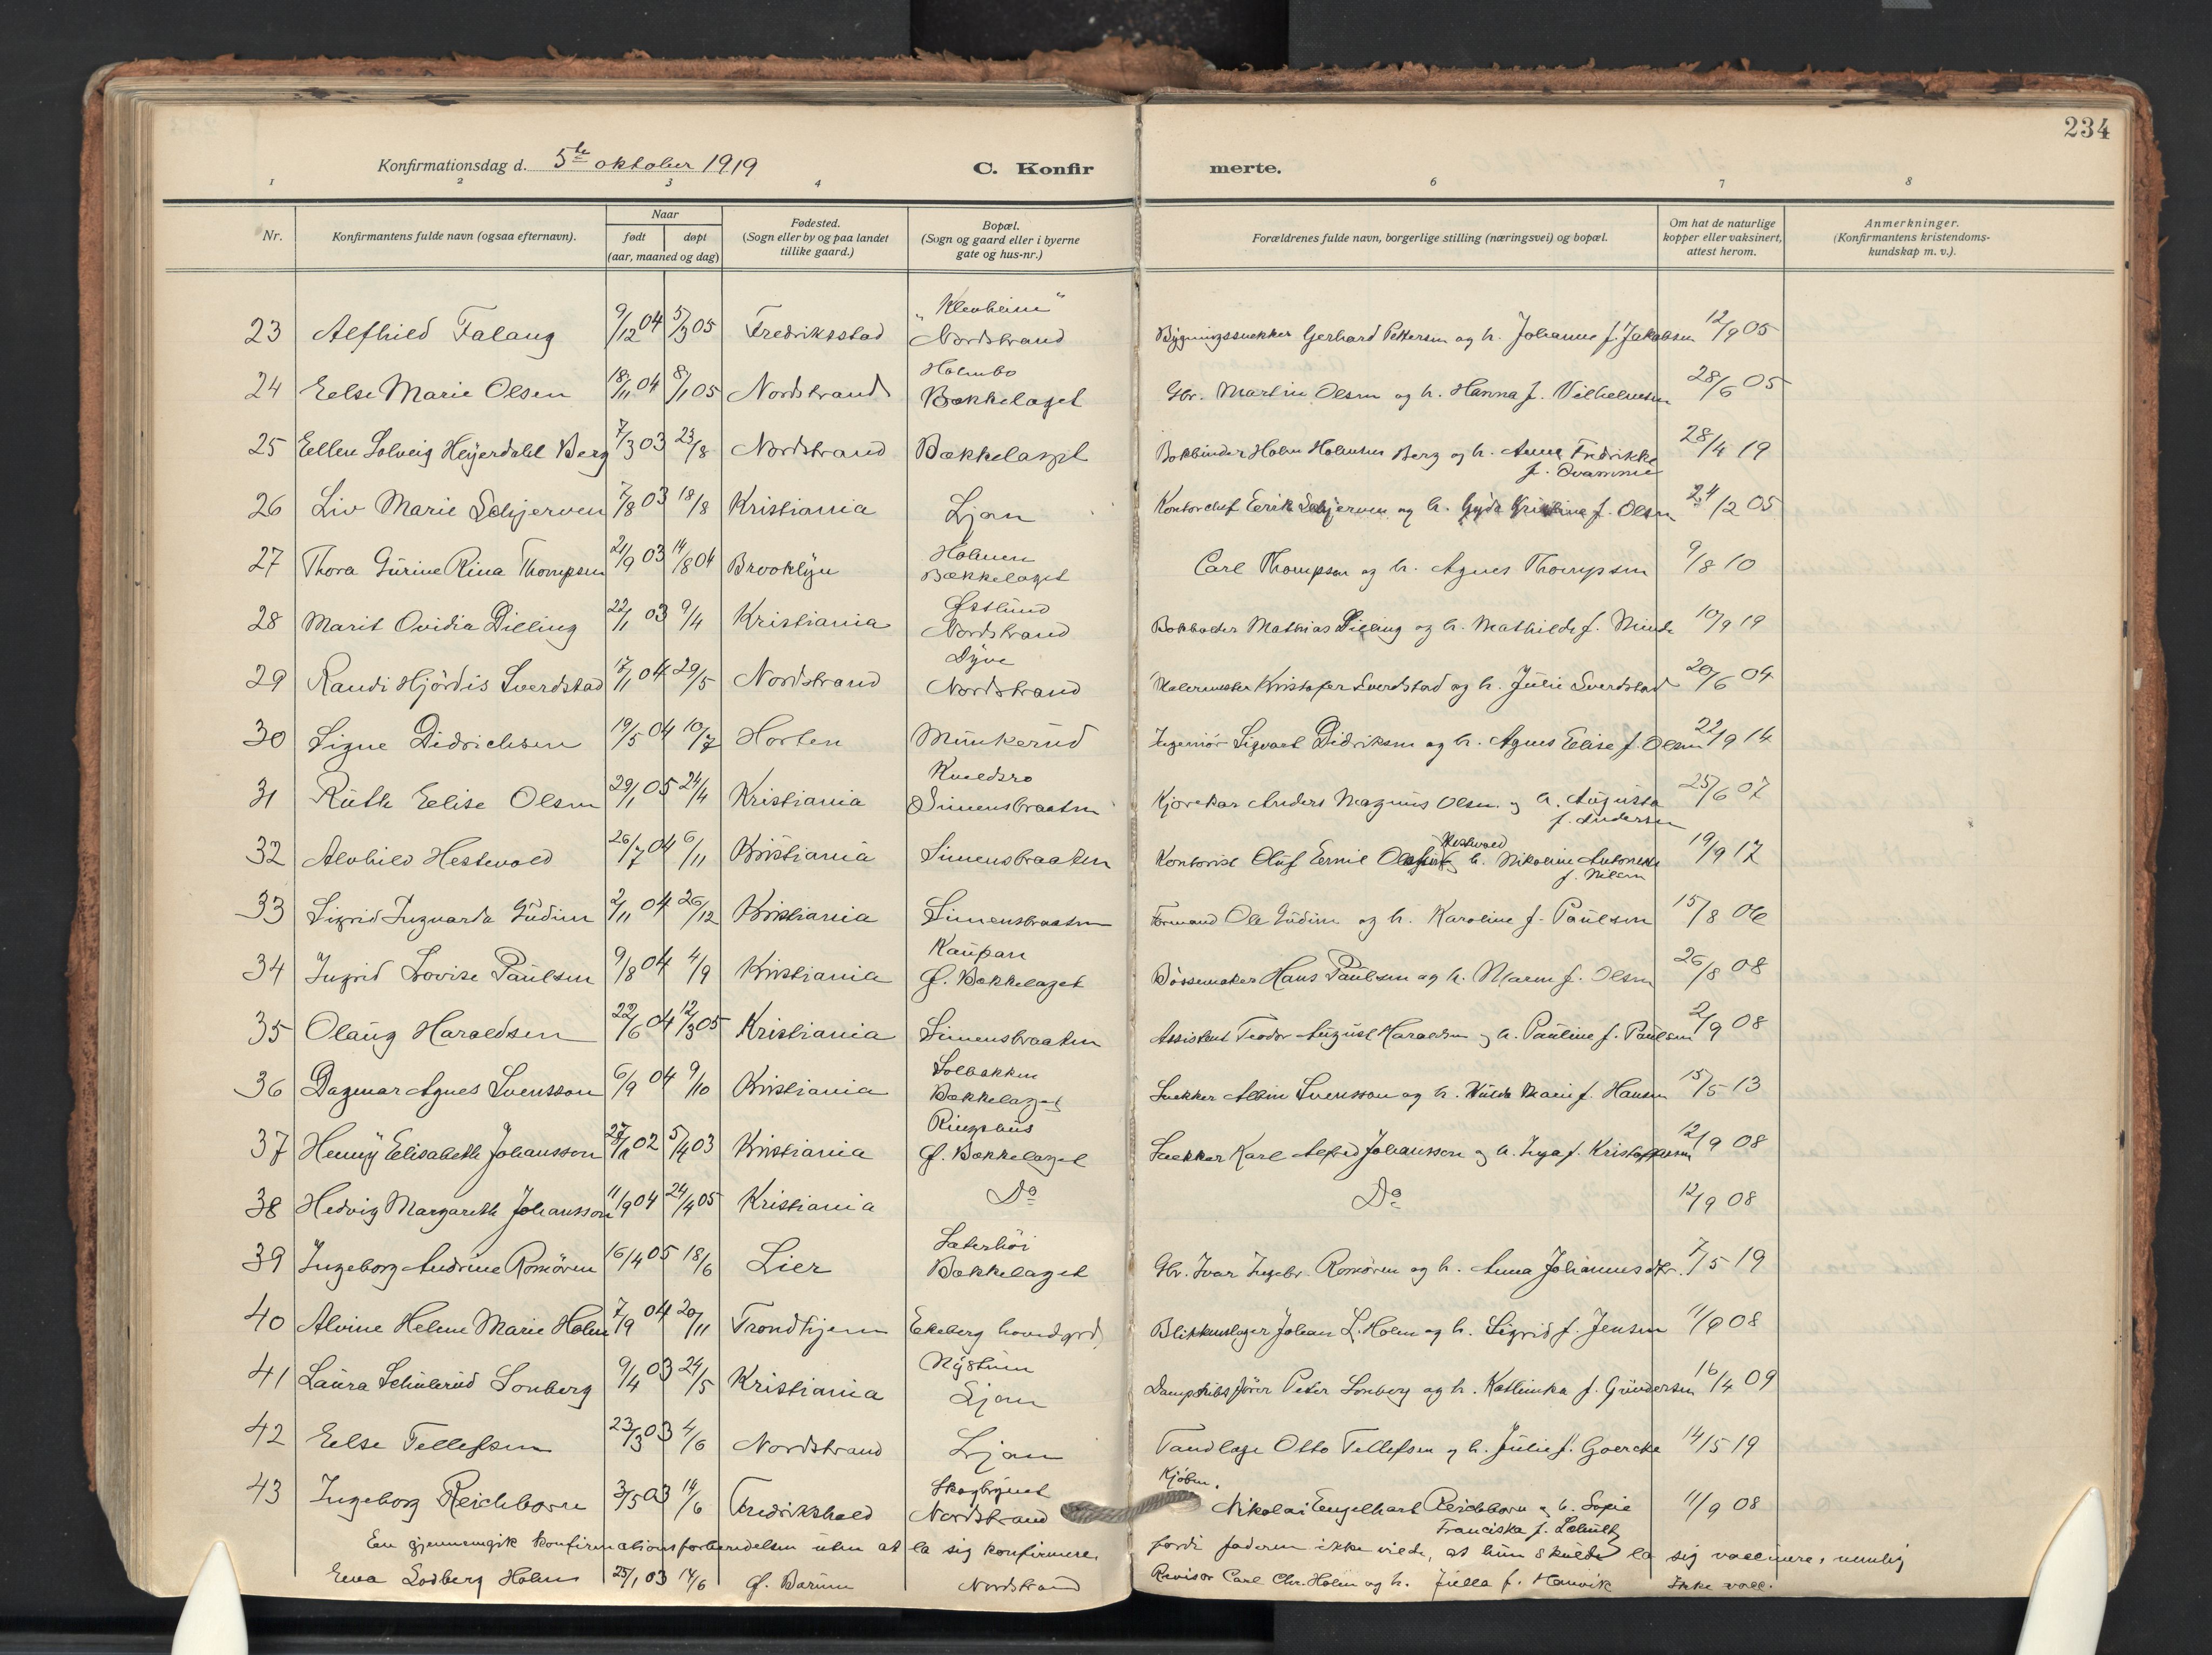 234
Konfirmationsdag d. 5te oktober 1919 C. Konfirmerte.
1 2 3 4 6 7 8
Nr. Konfirmantens fulde navn (ogsaa efternavn). Naar født døpt (aar, maaned og dag) Fødested. (Sogn eller by og paa landet tillike gaard.) Bopæl. (Sogn og gaard eller i byerne gate og hus-nr.) Forældrenes fulde navn, borgerlige stilling (næringsvei) og bopæl. Om hat de naturlige kopper eller vaksinert, attest herom. Anmerkninger. (Konfirmantens kristendoms-kundskap m. v.).
23 Alfhild Falang 9/12 04 5/3 05 Fredriksstad "Klevheim" Nordstrand Bygningssnekker Gerhard Pettersen og h. Johanne f. Jakobsen 12/9 05
24 Else Marie Olsen 18/11 04 8/1 05 Nordstrand Holmbo Bækkelaget Gbr. Martin Olsen og h. Hanna f. Vilhelmsen 28/6 05
25 Ellen Solveig Heyerdahl Berg 7/3 03 23/8 Nordstrand Bækkelaget Bokbinder Holm Holmsen Berg og h. Anna Fredrikke f. 28/4 19
26 Liv Marie Schjerven 7/8 03 18/8 Kristiania Ljan Kontorchef Eerik Schjerven og h. Gyda Kristine f. Olsen 24/2 05
27 Thora Gurine Rina Thompsen 21/9 03 14/8 04 Brooklyn Holmen Bækkelaget Carl Thompson og h. Agnes Thompsen 9/8 10
28 Marit Ovidia Dilling 22/1 03 9/4 Kristiania Østlund Nordstrand Bokholder Mathias Dilling og h. Mathilde f. Minde 10/9 19
29 Randi Hjördis Sverdstad 17/11 04 29/5 Nordstrand Dyve Nordstrand Malermester Kristofer Sverdstad og h. Julie Sverdstad 20/6 04
30 Signe Didrichsen 19/5 04 10/7 Horten Munkerud Ingeniör Sigvart Didriksen og h. Agnes Elise f. Olsen 22/9 14
31 Ruth Elise Olsen 29/1 05 24/4 Kristiania Kveldsro Simensbraaten Kjørekar Anders Magnus Olsen og h. Augusta f. Andersen 25/6 07
32 Alvhild Hestvold 26/7 04 6/11 Kristiania Simensbraaten Kontorist Oluf Emil Hestvold h. Nikoline Antonette f. Nilsen 19/9 17
33 Sigrid Ingvarda Gudim 2/11 04 26/12 Kristiania Simensbraaten Formand Ole Gudim og h. Karoline f. Paulsen 15/8 06
34 Ingrid Lovise Paulsen 9/8 04 4/9 Kristiania Kaupan Ø. Bækkelaget Bössemaker Hans Paulsen og h. Maren f. Olsen 26/8 08
35 Olaug Haraldsen 22/6 04 12/3 05 Kristiania Simensbraaten Assistent Teodor August Haraldsen og h. Pauline f. Paulsen 2/9 08
36 Dagmar Agnes Svensson 6/9 04 9/10 Kristiania Solbakken Bækkelaget Snekker Albin Svensson og h. Hulda Marie f. Hansen 15/5 13
37 Henny Elisabeth Johansson 27/11 02 5/4 03 Kristiania Ringshus Ø. Bækkelaget Snekker Karl Alfred Johansson og h. Inga f. Kristoffersen 12/9 08
38 Hedvig Margareth Johansson 11/9 04 24/4 05 Kristiania Do Do 12/9 08
39 Ingeborg Andrine Romören 16/4 05 18/6 Lier Sæterhöi Bækkelaget Gbr. Ivar Ingebr. Romören og h. Anna Johannesdtr. 7/5 19
40 Alvine Helene Marie Holm 7/9 04 20/11 Trondhjem Ekeberg hovedgrd. Blikkenslager Johan L. Holm og h. Sigrid f. Jensen 11/9 08
41 Laura Schulerud Sonberg 9/4 03 24/5 Kristiania Nystuen Ljan Dampskibsförer Peter Sonberg og h. Kathinka f. Gundersen 16/4 09
42 Else Tellefsen 23/3 03 4/6 Nordstrand Ljan Tandlæge Otto Tellefsen og h. Julie f. Goercke 14/5 19
43 Ingeborg Reichborn 3/5 03 14/6 Fredrikshald Skogbrynet Nordstrand Kjöbm. Nikolai Engelhart Reichborn og h. Sofie Franciska f. Schultz 11/9 08
En gjennemgik konfirmationsforberedelsen uten at la sig konfirmere, fordi faderen ikke vilde, at hun skulde la sig vaccinere, nemlig
Ewa Sodberg Holm 25/1 03 14/6 Ø. Bærum Nordstrand Revisor Carl Chr. Holm og h. Julla f. Hauvik Ikke vacc.